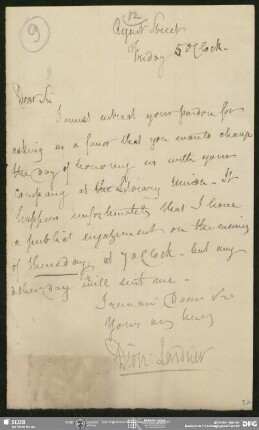 9
12
Regent Street
Friday 5 o'Clock.
Dear Sir
I must entreat your pardon for
asking as a favor that you would change
the day of honoring us with your
company at the Literary Union. It
happens unfortunately that I have
a public engagement on the evening
of Thursday, at 7 o'Clock – but any
other day will suit me.
I remain Dear Sir
Yours very truly
Dion: Lardner
SLUB
DFG